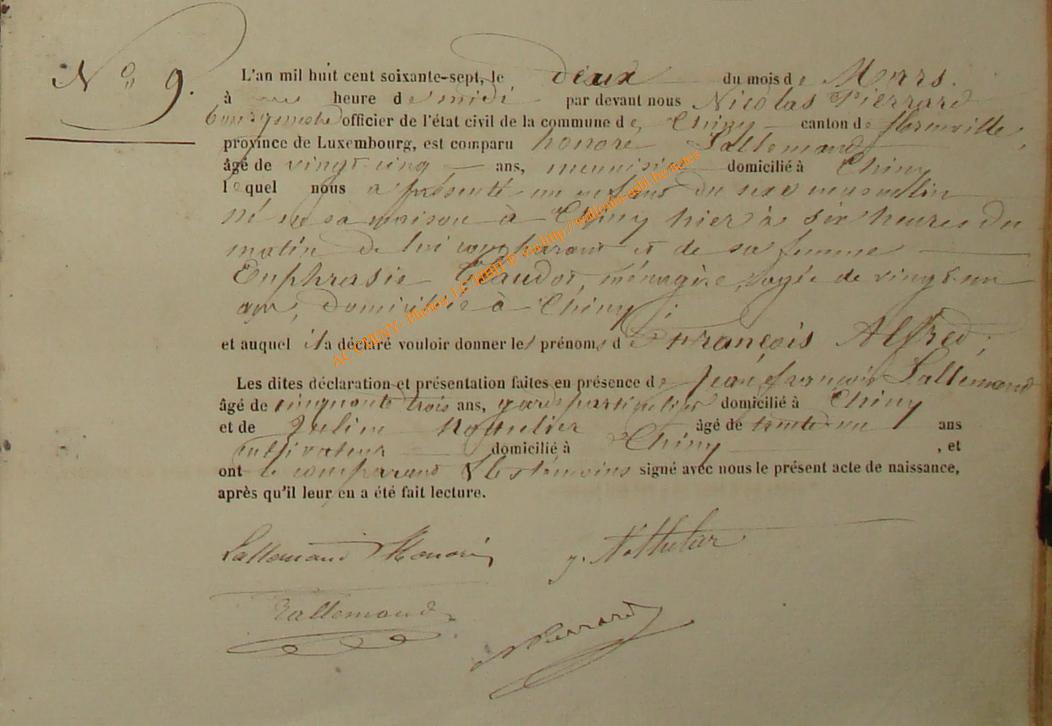 N° 9.
L'an mil huit cent soixante-sept, le deux du mois de Mars.
à heure de midi par devant nous Nicolas Pierrard
bourgmestre officier de l'état civil de la commune de Chiny canton de florenville,
province de Luxembourg, est comparu honoré Lallemand
âgé de vingt cinq ans, menuisier domicilié à Chiny
lequel nous a présenté un enfant du sexe masculin
né en sa maison à Chiny hier à six heures du
matin de lui comparant et de sa femme
Euphrasie ménagère, agée de vingt un
ans, domiciliée à Chiny;
et auquel il a déclaré vouloir donner les prénoms de François Alfred;
Les dites déclaration et présentation faites en présence de Jean françois Lallemand
âgé de cinquante trois ans, garde particulier domicilié à Chiny
et de âgé de trente un ans
cultivateur domicilié à Chiny , et
ont le comparant & les témoins signé avec nous le présent acte de naissance,
après qu'il leur en a été fait lecture.
Lallemand Honoré
Lallemand
N Pierrard